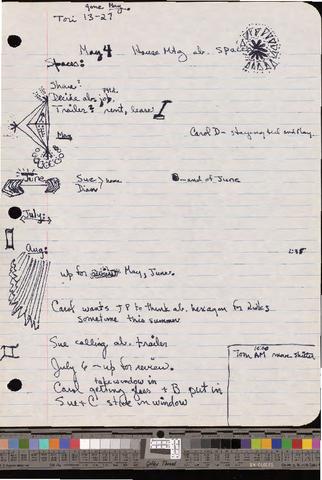 gone May.
Tori 13-27
May 4 House Mtg ab. space
Spaces:
Share?
Decide abt. job,
Trailer? rent, lease
May
Carol D - staying till end May.
June
Sue > home
Diane
- end of June
July:
Aug:
up for May, June.
Carol wants JP to think ab. hexagon for kids
sometime this summer
Sue calling ab. trailer
July 6 - up for review.
take window in
Carol getting glass + B put in
Sue + C stick in window
10:00
Tom AM more shitter